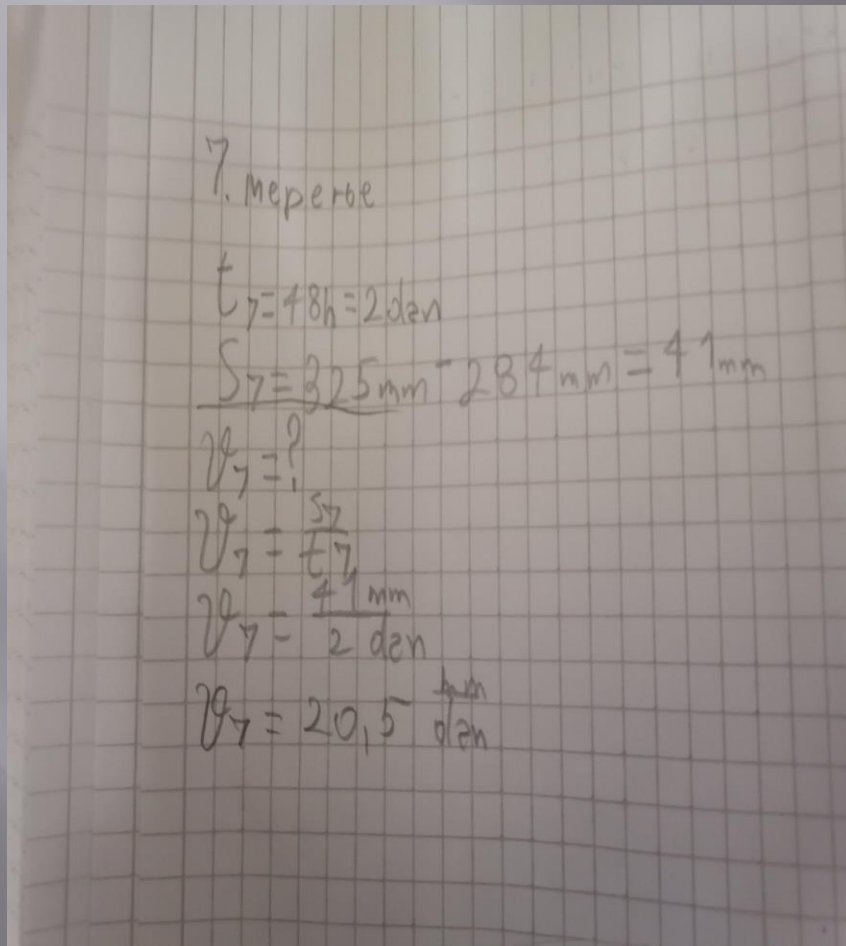 7. мерење
t₇=48h=2den
S₇=325mm-284mm=41mm
v₇=?
v₇=s₇/t₇
v₇=41mm/2den
v₇=20,5 mm/den